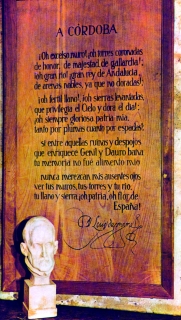 A CÓRDOBA
¡Oh excelso muro! ¡oh torres coronadas
de honor, de majestad, de gallardía!
¡oh gran río! gran rey de Andalucía,
de arenas nobles, ya que no doradas!
¡oh fértil llano!, ¡oh sierras levantadas,
que privilegia el Cielo y dora el día!
¡oh siempre gloriosa patria mía,
tanto por plumas cuanto por espadas!
si entre aquellas ruinas y despojos
que enriquece Genil y Dauro baña
tu memoria no fué alimento mío
nunca merezcan mis ausentes ojos
ver tus muros, tus torres y tu río,
tu llano y sierra, ¡oh patria, oh flor de
España!